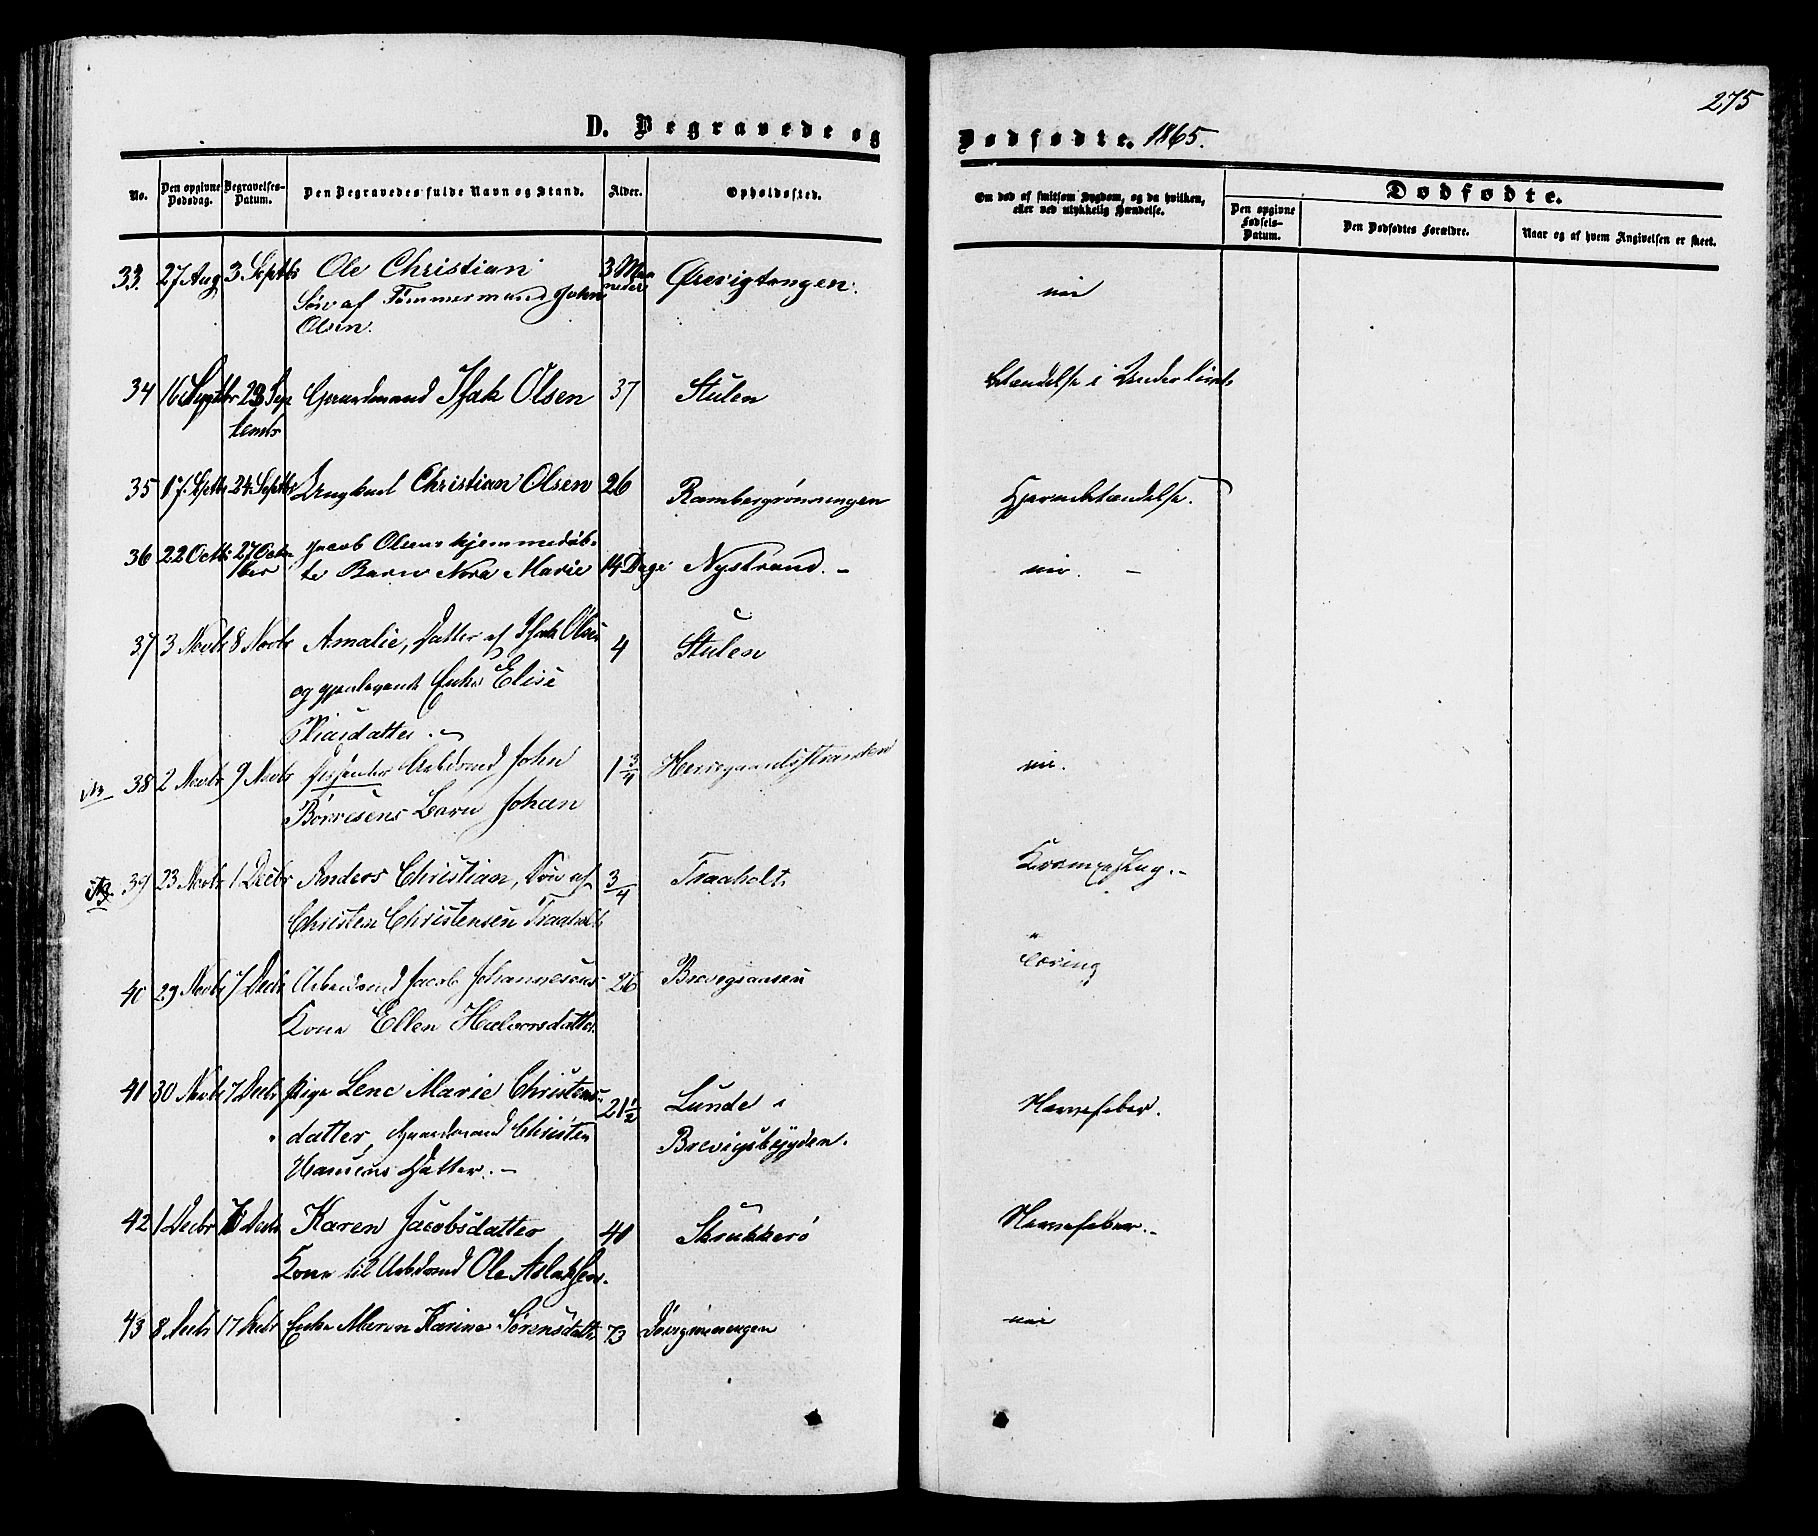 275
D. Begravede og Dødfødte. 1865.
No.
Den opgivne Dødsdag.
Begravelses-Datum.
Den Begravedes fulde Navn og Stand.
Alder.
Opholdssted.
Om død af smitsom Sygdom, og da hvilken, eller ved ulykkelig Hændelse.
Dødfødte.
Den opgivne Fødsels-Datum.
Den Dødfødtes Forældre.
Naar og af hvem Angivelsen er skeet.
33. 27 Aug 3 Septbr Ole Christian 3 Maaneder Ørevigtangen.
Søn af Tømmermand John
Olsen.
34 16 Septbr 23 September Gaardmand Isak Olsen 37 Stulen Betændelse i Underlivet
35 17. Septbr 24. Septbr Ungkarl Christian Olsen 26 Rambergrønningen Hjernebetændelse.
36 22 Octbr 27 October Jacob Olsens hjemmedøb-
te Barn Nora Marie 14 Dage Nystrand. –
37 3 Novbr 8 Novbr Amalie, Datter af Isak Olsen 4 Stulen
og gjenlevende Enke Elise
38 2 Novbr 9 Novbr Arbdsmd John 1 3/4
Børresens Barn Johan
39 23 Novbr 1 Decbr Anders Christian, Søn af 3/4 Traaholt. Krampeslag. –
Christen Christensen Traaholt
40 29 Novbr 7 Decbr Arbeidsmd Jacob Johannesens 26
Kone Ellen Halvorsdatter
41 30 Novbr 7 Decbr Pige Lene Marie Christens- 21 1/2 Lunde i Nervefeber.
datter, Gaardmand Christen Brevigsbygden.
Hansens Datter. –
42 1 Decbr Decbr Karen Jacobsdatter 40 Skrukkerø Nervefeber. –
Kone til Arbdsmd Ole Aslaksen.
43 8 Decbr 17 Decbr Enke Maren Karine Sørensdatter 73